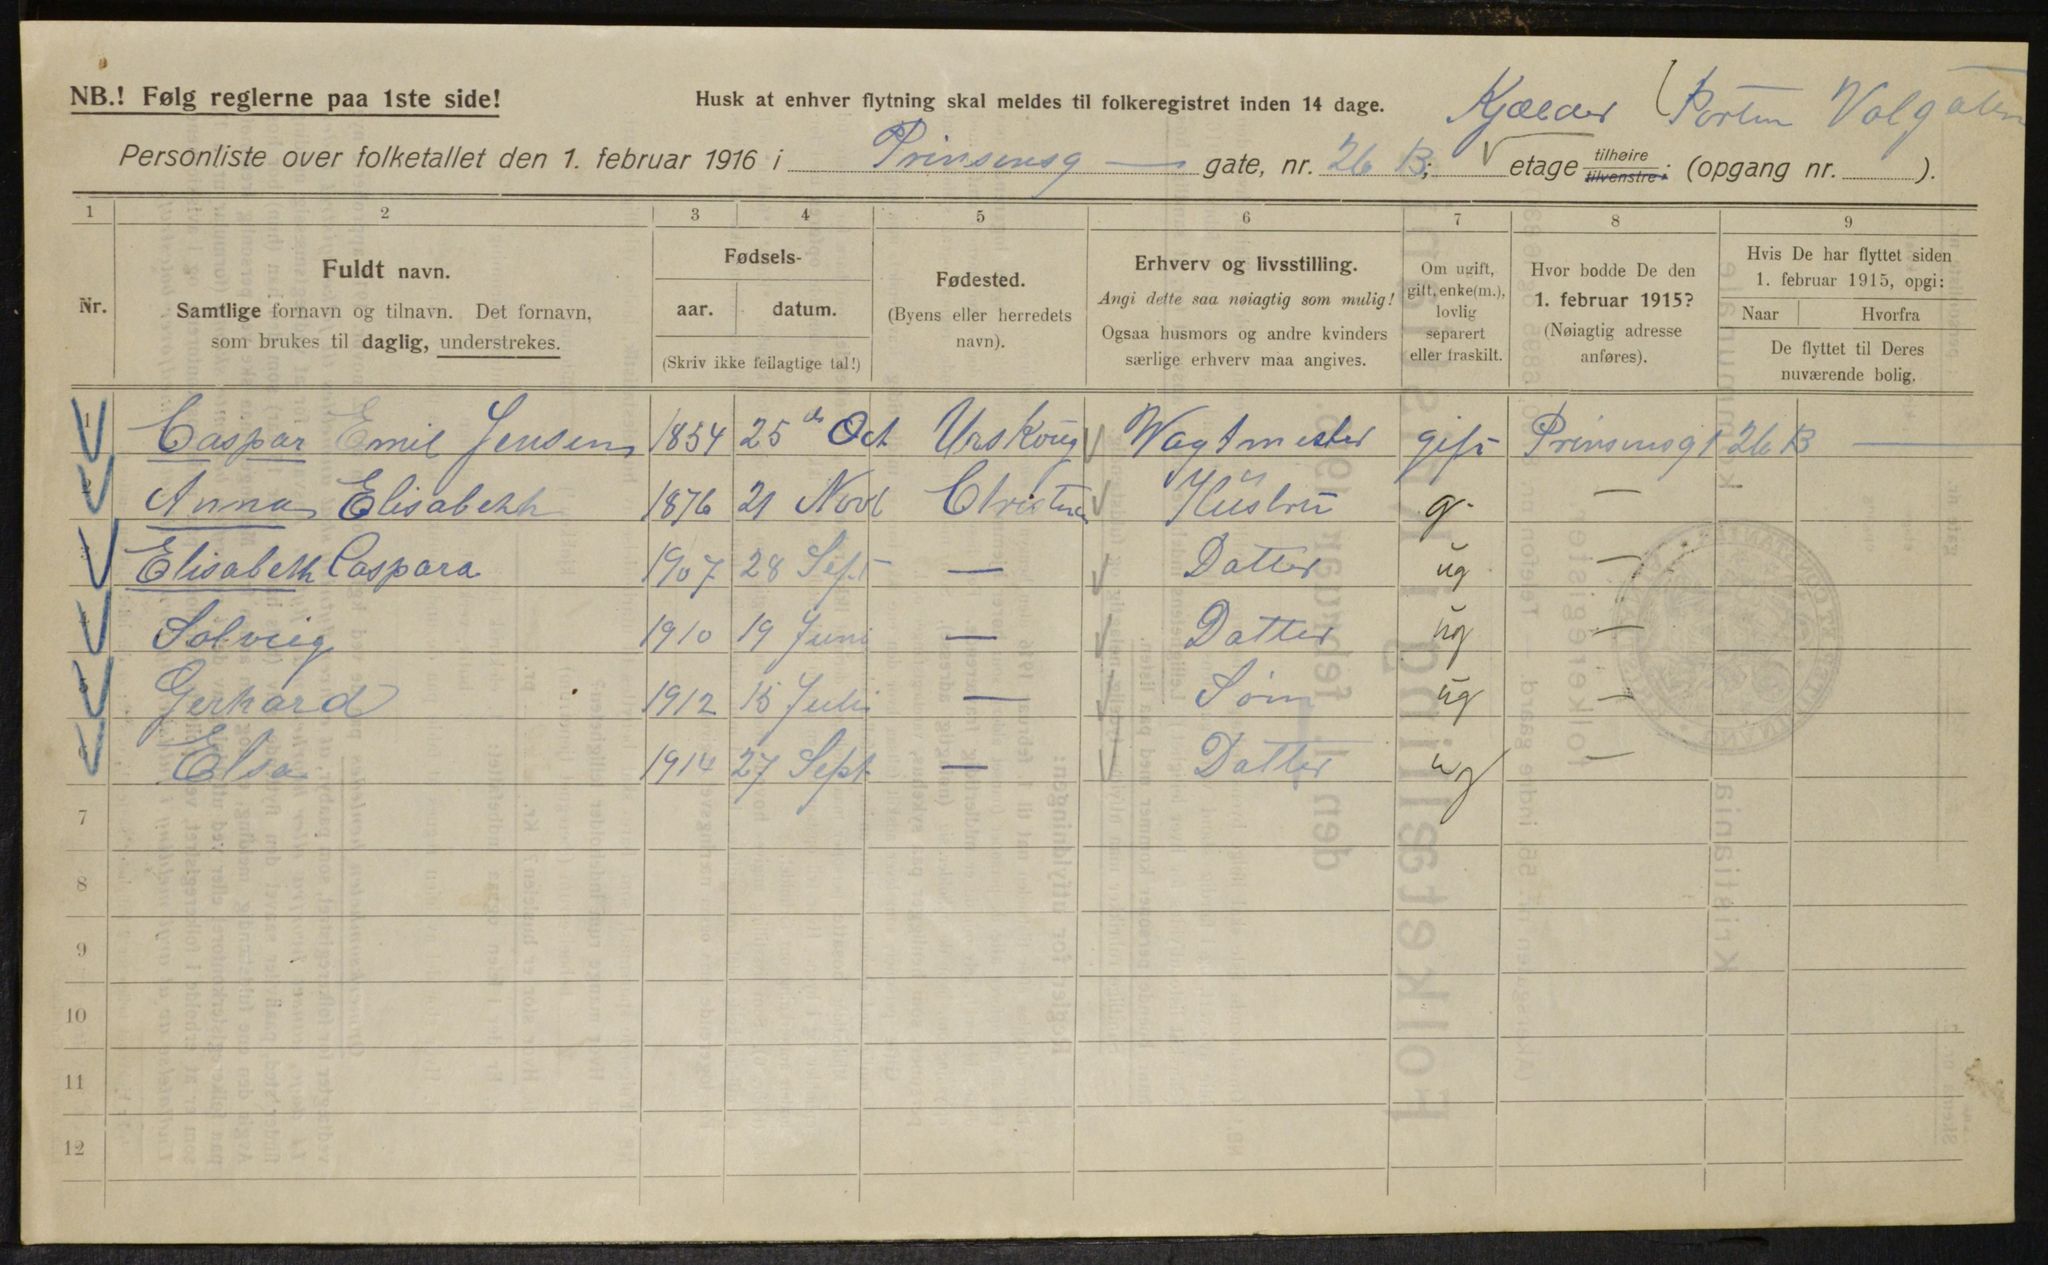 NB.! Følg reglerne paa 1ste side!
Husk at enhver flytning skal meldes til folkeregistret inden 14 dage.
Kjælder (Porten Volgaten
Personliste over folketallet den 1. februar 1916 i Prinsensg — gate, nr. 26 B; etage tilhøire tilvenstre; (opgang nr. ).
1 2 3 4 5 6 7 8 9
Nr.
Fuldt navn.
Samtlige fornavn og tilnavn. Det fornavn,
som brukes til daglig, understrekes.
Fødsels-
aar. datum.
(Skriv ikke feilagtige tal!)
Fødested.
(Byens eller herredets
navn).
Erhverv og livsstilling.
Angi dette saa nøiagtig som mulig!
Ogsaa husmors og andre kvinders
særlige erhverv maa angives.
Om ugift,
gift, enke(m.),
lovlig
separert
eller fraskilt.
Hvor bodde De den
1. februar 1915?
(Nøiagtig adresse
anføres).
Hvis De har flyttet siden
1. februar 1915, opgi:
Naar Hvorfra
De flyttet til Deres
nuværende bolig.
1 Caspar Emil Jensen 1854 25 de Oct Urskoug Vagtmester gift Prinsensg 26 B —
Anna Elisabeth 1876 21 Novb Christia Hüstrü g. —
Elisabeth Caspara 1907 28 Sept — Datter ug —
Solveig 1910 19 Juni — Datter ug —
Gerhard 1912 15 Juli — Søn ug —
Elsa 1914 27 Sept — Datter ug —
7
8
9
10
11
12